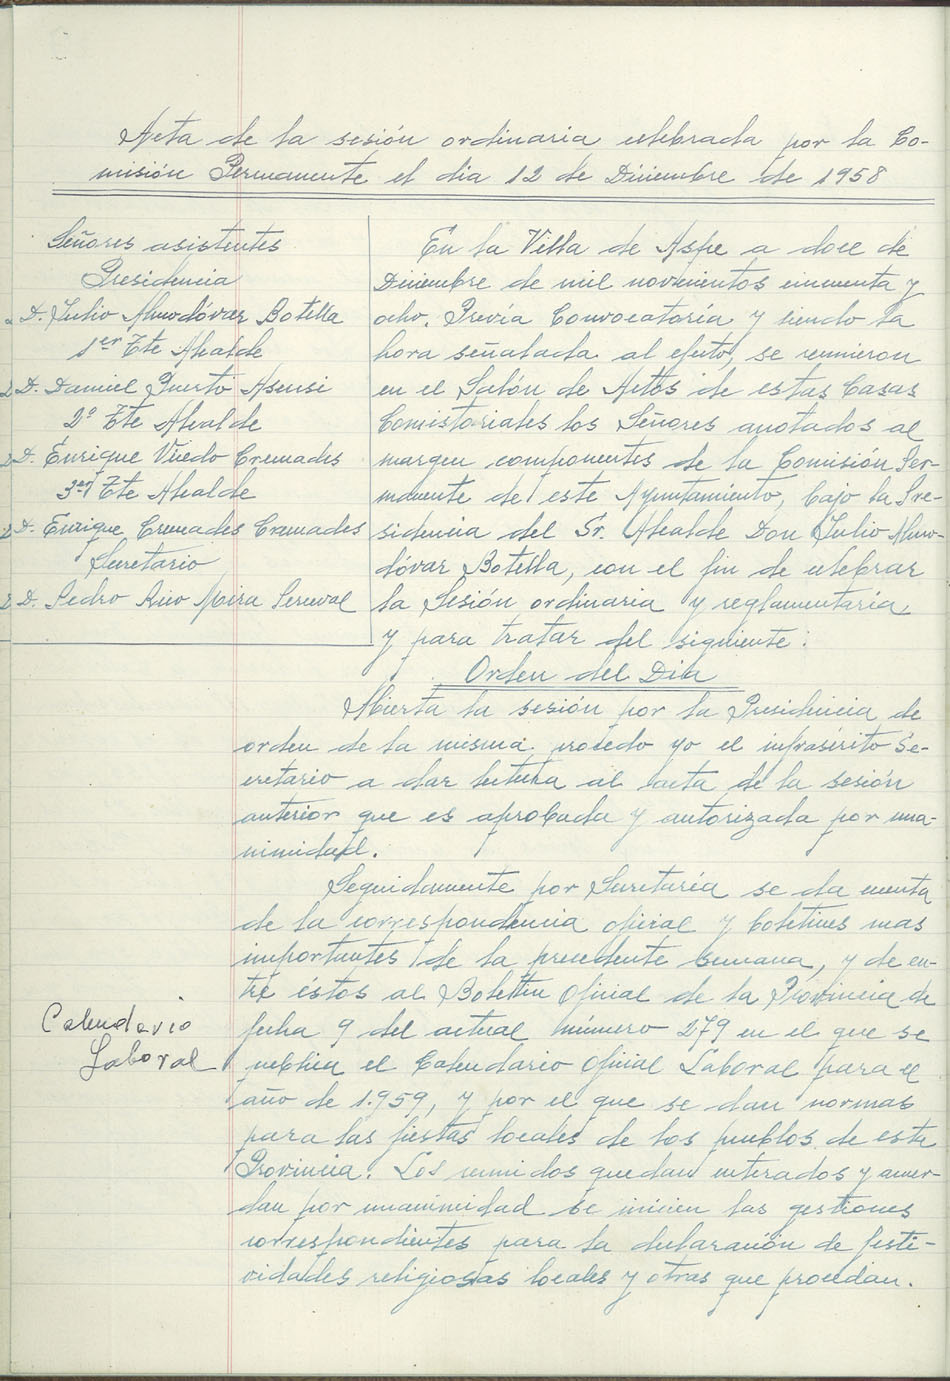 Acta de la sesión ordinaria celebrada por la Co-
misión Permanente el dia 12 de Diciembre de 1958
Señores asistentes
Presidencia
D. Julio Almodóvar Botella
1er Tte Alcalde
D. Daniel Puerto Asensi
2º Tte Alcalde
D. Enrique Viñedo Cremades
3er Tte Alcalde
D. Enrique Cremades Cremades
Secretario
D. Pedro Rico Mira Perceval
En la Villa de Aspe a doce de
Diciembre de mil novecientos cincuenta y
ocho. Previa Convocatoria y siendo la
hora señalada al efecto, se reunieron
en el Salón de Actos de estas Casas
Consistoriales los Señores anotados al
margen componentes de la Comisión Per-
manente de este Ayuntamiento, bajo la Pre-
sidencia del Sr. Alcalde Don Julio Almo-
dóvar Botella, con el fin de celebrar
la Sesión ordinaria y reglamentaria
y para tratar del siguiente:
Orden del Dia
Abierta la sesión por la Presidencia de
orden de la misma procedo yo el infrascrito Se-
cretario a dar lectura al acta de la sesión
anterior que es aprobada y autorizada por una-
nimidad.
Seguidamente por Secretaría se da cuenta
de la correspondencia oficial y boletines mas
importantes de la precedente semana, y de en-
tre éstos al Boletin Oficial de la Provincia de
fecha 9 del actual número 279 en el que se
publica el Calendario Oficial Laboral para el
año de 1.959, y por el que se dan normas
para las fiestas locales de los pueblos de esta
Provincia. Los reunidos quedan enterados y acuer-
dan por unanimidad se inicien las gestiones
correspondientes para la declaración de festi-
vidades religiosas locales y otras que procedan.
Calendario
Laboral